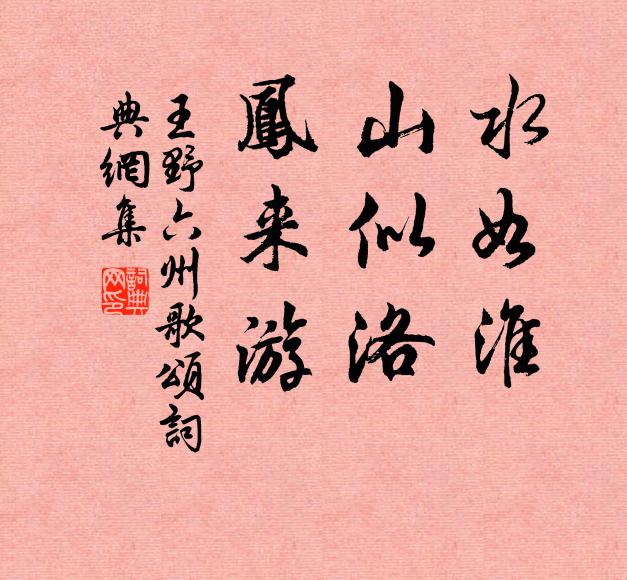 水如淮
山似洛
鳳来游
王野六州歌頌詞
典網集
詞典网印